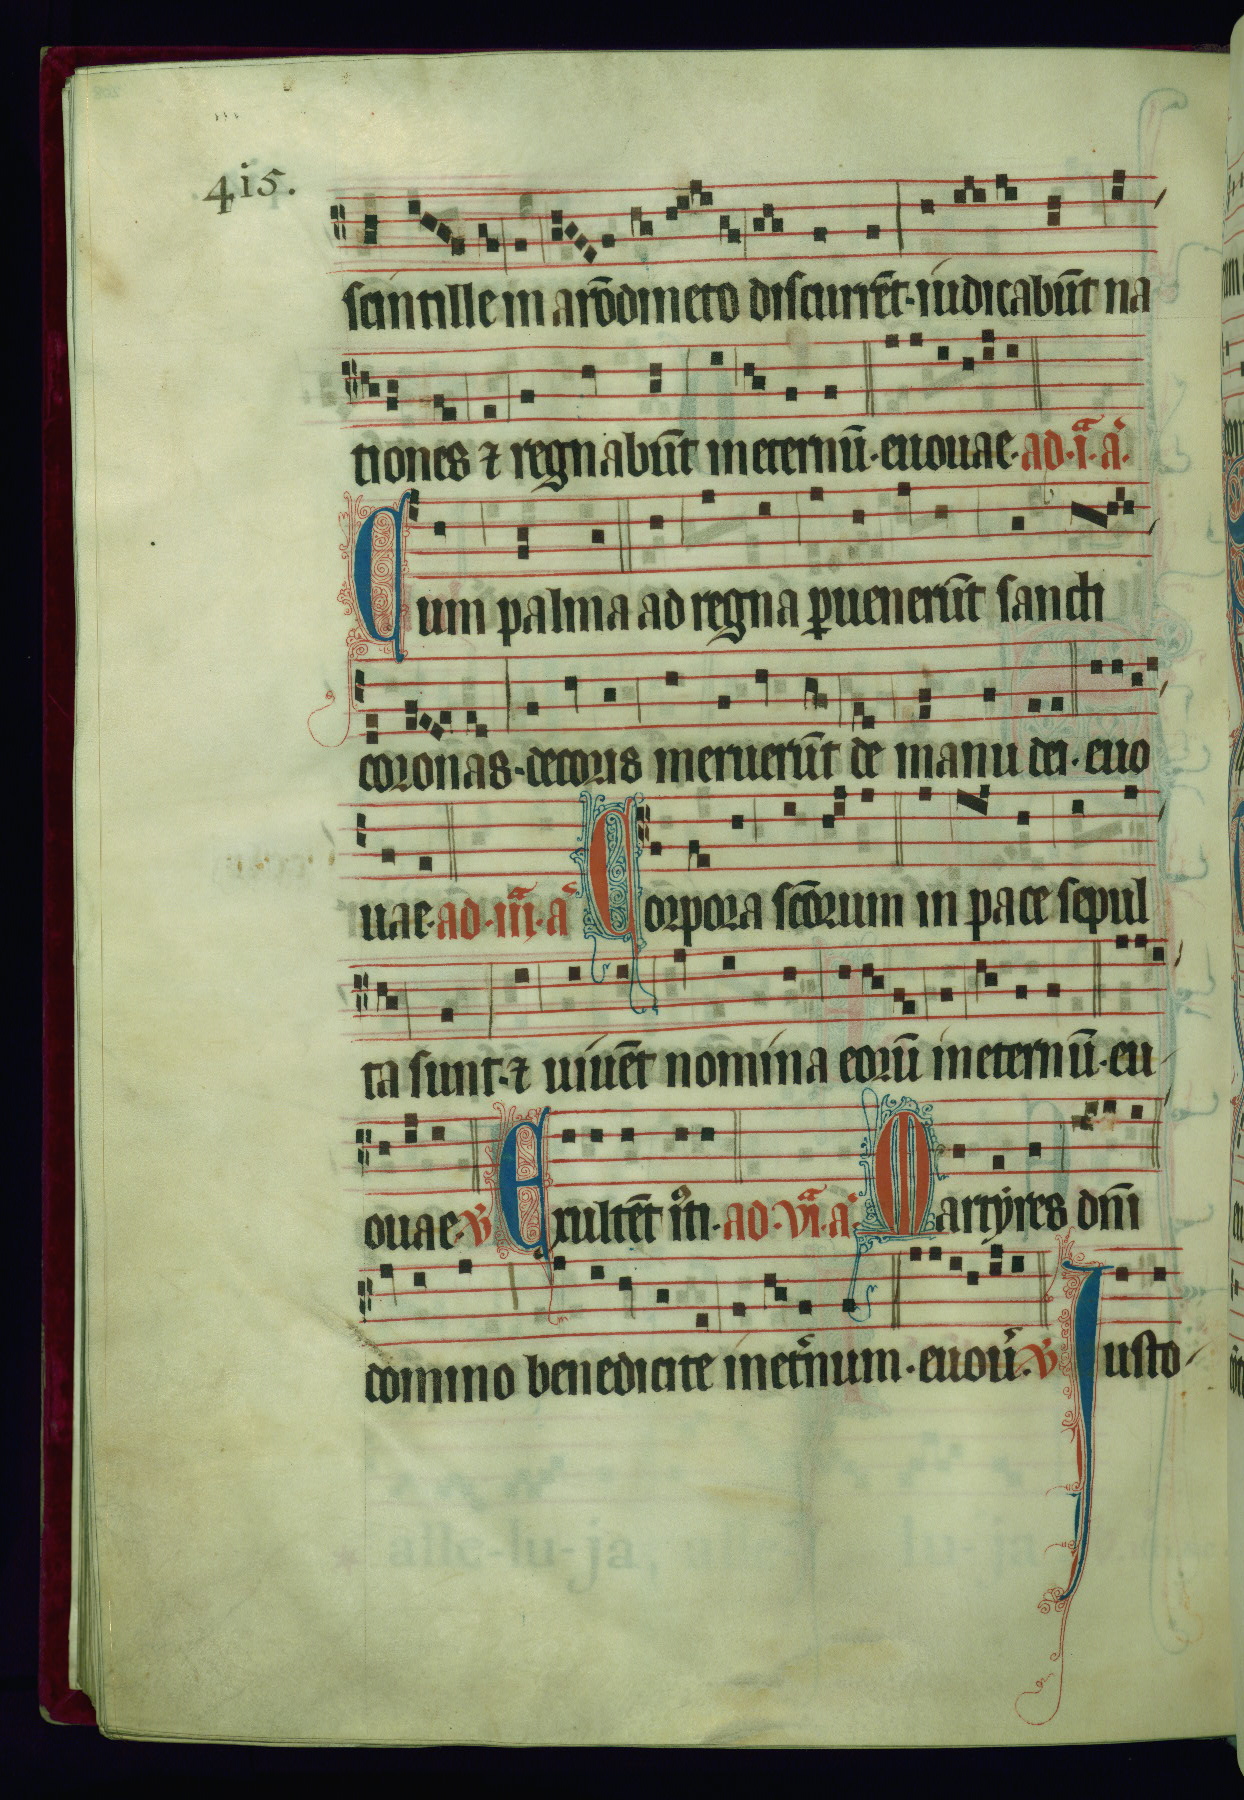 4i5.
scintille in arūdineto discurrēt. iudicabūt na
tiones ⁊ regnabūt ineternū. euouae. ad. i. a.
Cum palma ad regna ꝑuenerūt sancti
coronas. decoris meruerūt de manu dei. euo
uae. ad. iii. a Corpora scōrum in pace sepul
ta sunt. ⁊ uiuēt nomina eorū ineternū. eu
ouae. V Exultēt iꝰti. ad. vi. a. Martyres dnī
domino benedicite inet̾num. euou. V Iusto